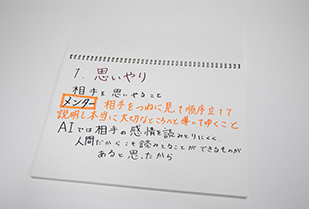 1. 思いやり
相手を思いやること
メンター 相手をつねに見て順序立てて
説明し本当に大切なところへと導ってゆくこと
AIでは相手の感情を読みとりにくく、
人間だからこそ読みとることができるものが
あると思ったから